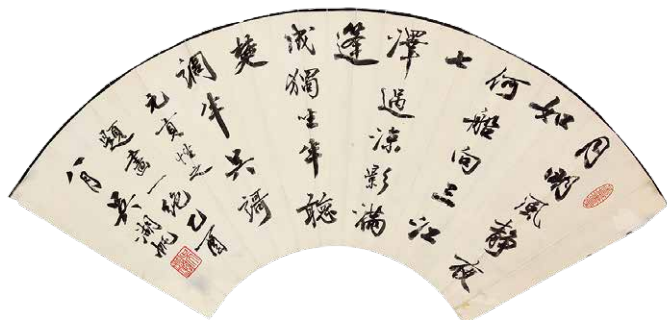 月明風靜夜
如
何船向三江
七
澤過涼影滿
蓬
成獨坐半聽
楚
調半吳謌
元貢性之
題畫一絕乙酉
八月吳湖帆